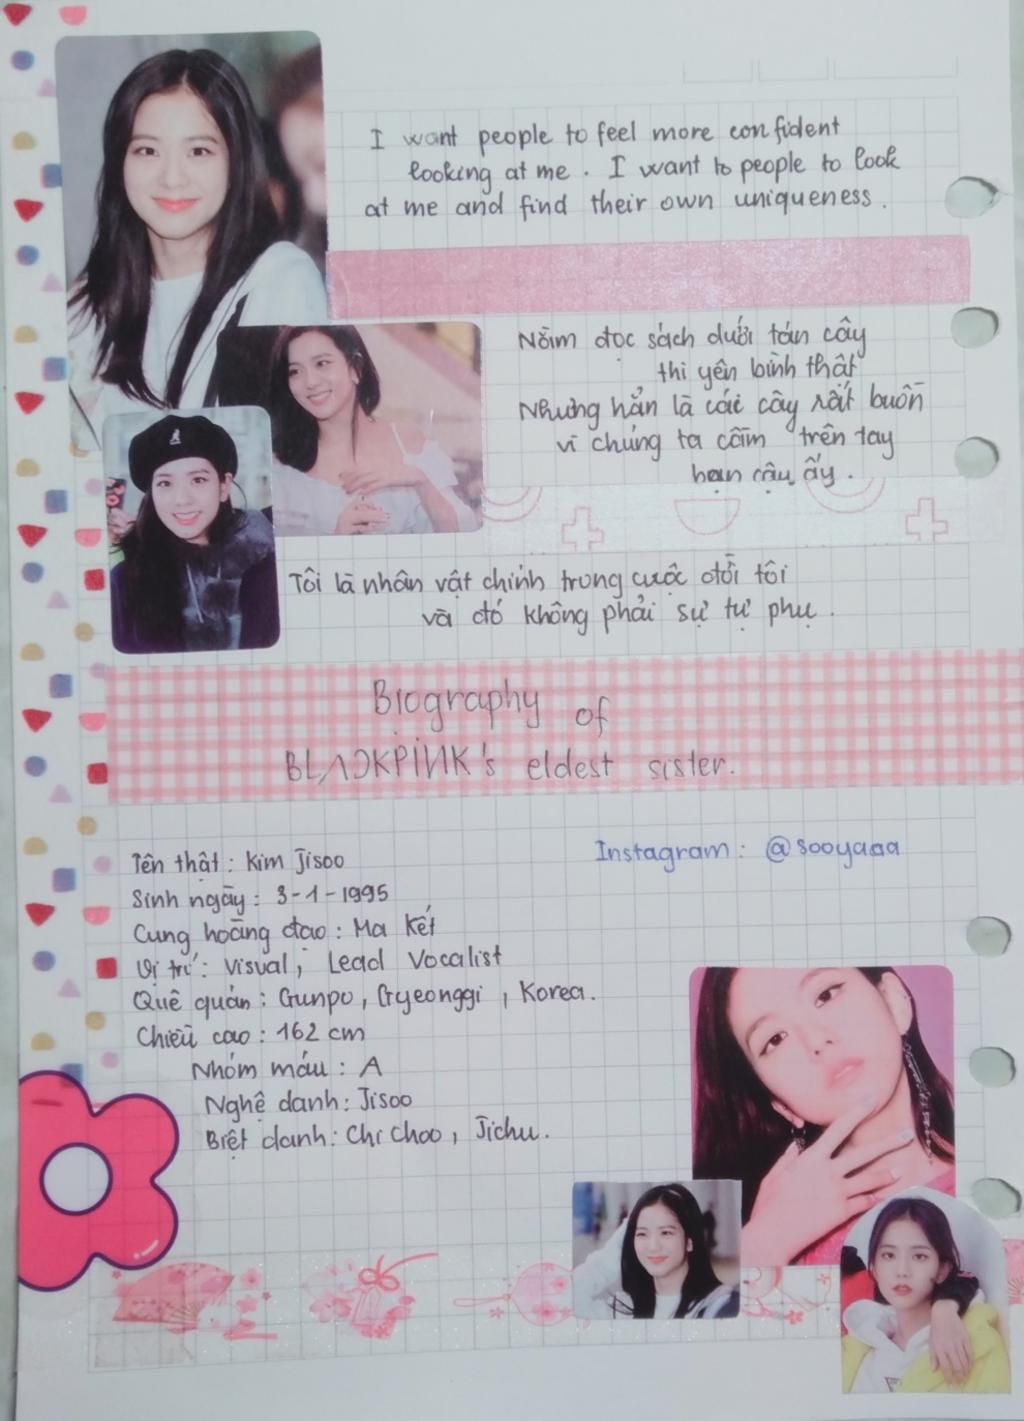 I want people to feel more confident
looking at me. I want to people to look
at me and find their own uniqueness.
Nằm đọc sách dưới tán cây
thì yên bình thật
Nhưng hẳn là các cây rất buồn
vì chúng ta cầm trên tay
bạn cậu ấy.
Tôi là nhân vật chính trong cuộc đời tôi
và đó không phải sự tự phụ.
Biography of
BLACKPINK's eldest sister.
Tên thật: Kim Jisoo
Instagram: @sooyaaa
Sinh ngày: 3-1-1995
Cung hoàng đạo: Ma Kết
Vị trí: Visual, Lead Vocalist
Quê quán: Gunpo, Gyeonggi, Korea.
Chiều cao: 162 cm
Nhóm máu: A
Nghệ danh: Jisoo
Biệt danh: Chi Choo, Jichu.